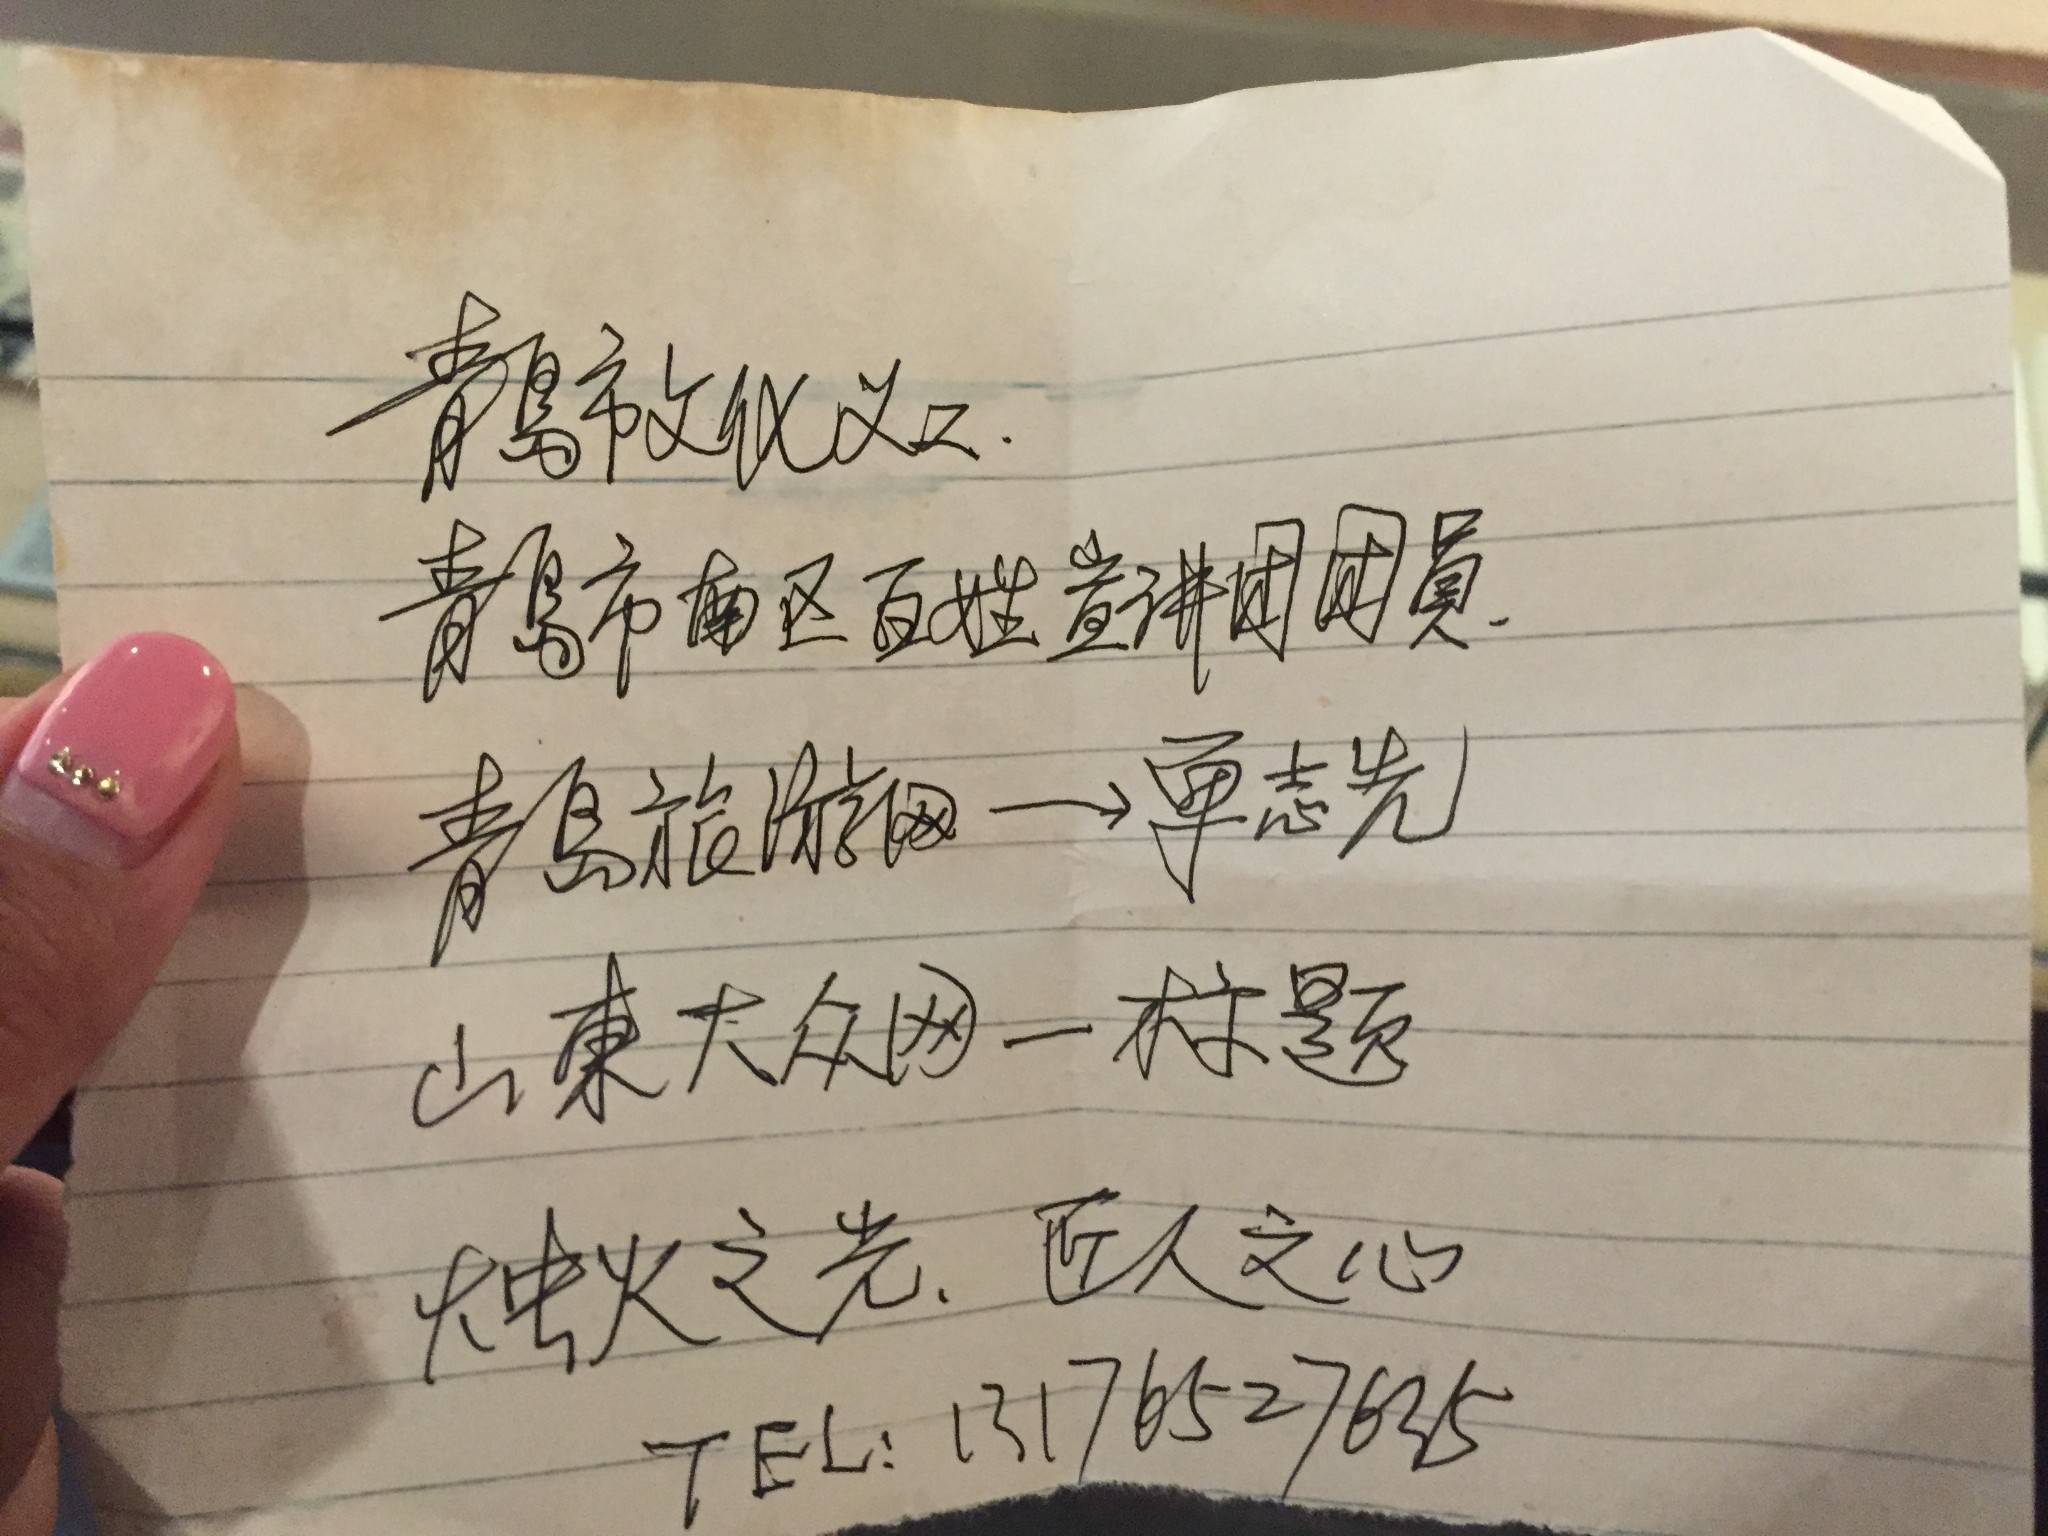 青島市文化义工.
青島市南区百姓宣讲团团員.
青島旅游网→单志先
山東大众网一标题
烛火之光、匠人文心
TEL: 13176527635